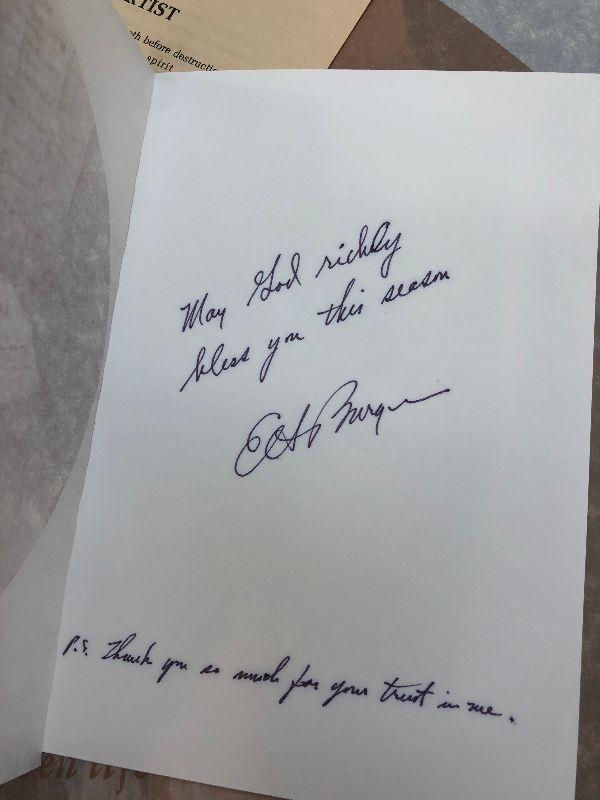 RTIST
th before destructio
spirit
May God richly
bless you this season
P.S. Thank you so much for your trust in me.